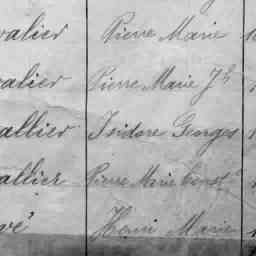 valier Pierre Marie
valier Pierre Marie Jh
vallier Isidore Georges
allier Pierre Marie Const
vé Henri Marie